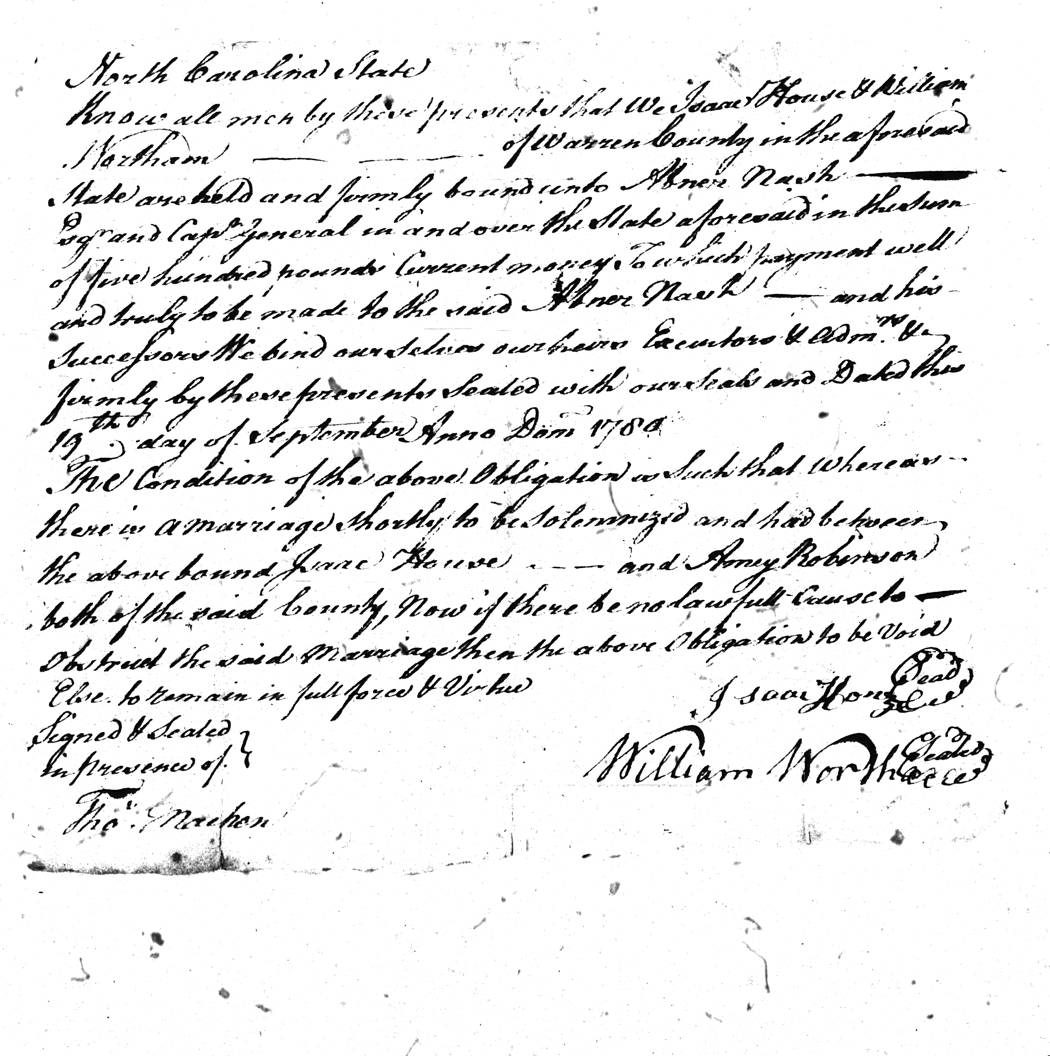 North Carolina State
Know all men by these presents that We Isaac House & William
Northam — — of Warren County in the aforesaid
State are held and firmly bound unto Abner Nash —
Esqr. and Capn. General in and over the State aforesaid in the Sum
of five hundred pounds Current money To which payment well
and truly to be made to the said Abner Nash — and his
Successors We bind ourselves our heirs Executors & Admrs. &c
firmly by these presents Sealed with our Seals and Dated this
19th day of September Anno Dom 1780
The Condition of the above Obligation is Such that Whereas --
there is a Marriage shortly to be Solemnized and had between
the above bound Isaac House - - — and Amey Robinson
both of the said County, Now if there be no lawfull Cause to —
Obstruct the said Marriage then the above Obligation to be Void
Else to remain in full force & Virtue
Signed & Sealed
in presence of }
Isaac House Seal
William Northam Seal
Thos. Machen